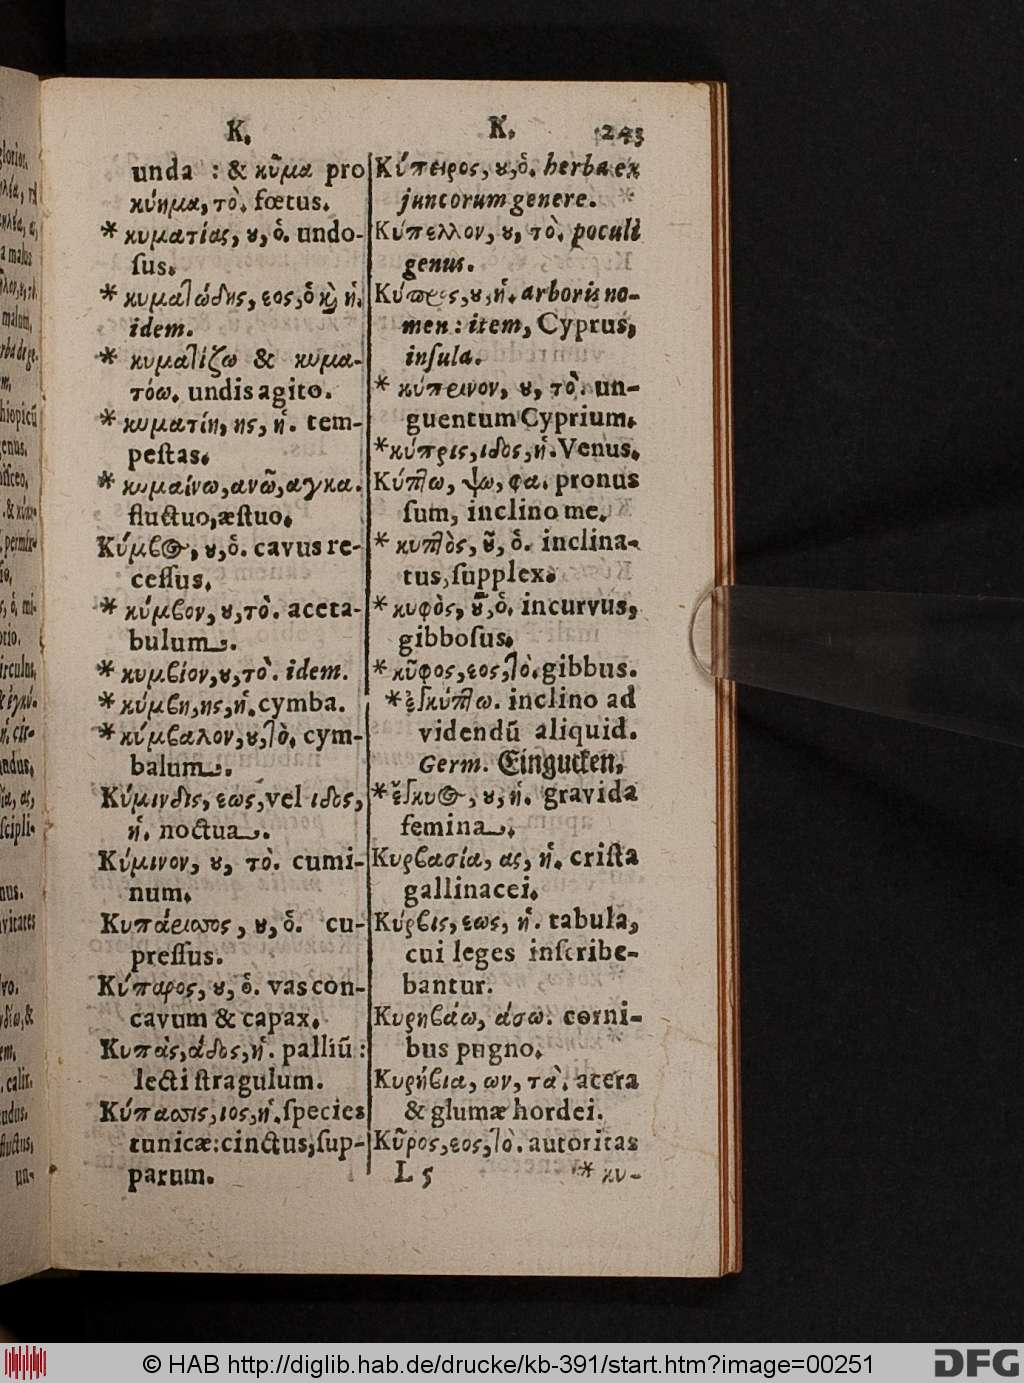 K.
unda : & κῦμα pro
κύημα, τὸ. fœtus.
* κυματίας, ȣ, ὁ. undo-
ſus.
* κυματώδης, εος, ὁ κ̀ ἡ.
idem.
* κυματίζω & κυμα-
τόω. undis agito.
* κυματίη, ης, ἡ. tem-
peſtas.
* κυμαίνω, ανῶ, αγκα.
fluctuo, æſtuo.
Κύμβος, ȣ, ὁ. cavus re-
ceſſus.
* κύμβον, ȣ, τὸ. aceta-
bulum.
* κυμβίον, ȣ, τὸ. idem.
* κύμβη, ης, ἡ. cymba.
* κύμβαλον, ȣ, τὸ. cym-
balum.
Κύμινδις, εως, vel ιδος,
ἡ. noctua.
Κύμινον, ȣ, τὸ. cumi-
num.
Κυπάρισσος, ȣ, ὁ. cu-
preſſus.
Κύπαρος, ȣ, ὁ. vas con-
cavum & capax.
Κυπὰς, άδος, ἡ. palliū :
lecti ſtragulum.
Κύπασσις, ιος, ἡ. ſpecies
tunicæ: cinctus, ſup-
parum.
K. 243
Κύπειρος, ȣ, ὁ. herba ex
juncorum genere.
Κύπελλον, ȣ, τὸ. poculi
genus.
Κύπρος, ȣ, ἡ. arboris no-
men : item, Cyprus,
inſula.
* κύπρινον, ȣ, τὸ. un-
guentum Cyprium.
* κύπρις, ιδος, ἡ. Venus.
Κύπτω, ψω, φα. pronus
ſum, inclino me.
* κυπτὸς, ȣ͂, ὁ. inclina-
tus, ſupplex.
* κυφὸς, ȣ͂, ὁ. incurvus,
gibboſus.
* κῦφος, εος, τὸ. gibbus.
* ἐγκύπτω. inclino ad
videndū aliquid.
Germ. Eingucken.
* ἔγκυος, ȣ, ἡ. gravida
femina.
Κυρβασία, ας, ἡ. criſta
gallinacei.
Κύρβις, εως, ἡ. tabula,
cui leges inſcribe-
bantur.
Κυρηβάω, άσω. corni-
bus pugno.
Κυρήβια, ων, τὰ. acera
& glumæ hordei.
Κῦρος, εος, τὸ. autoritas
L 5 * κυ-
© HAB http://diglib.hab.de/drucke/kb-391/start.htm?image=00251
DFG